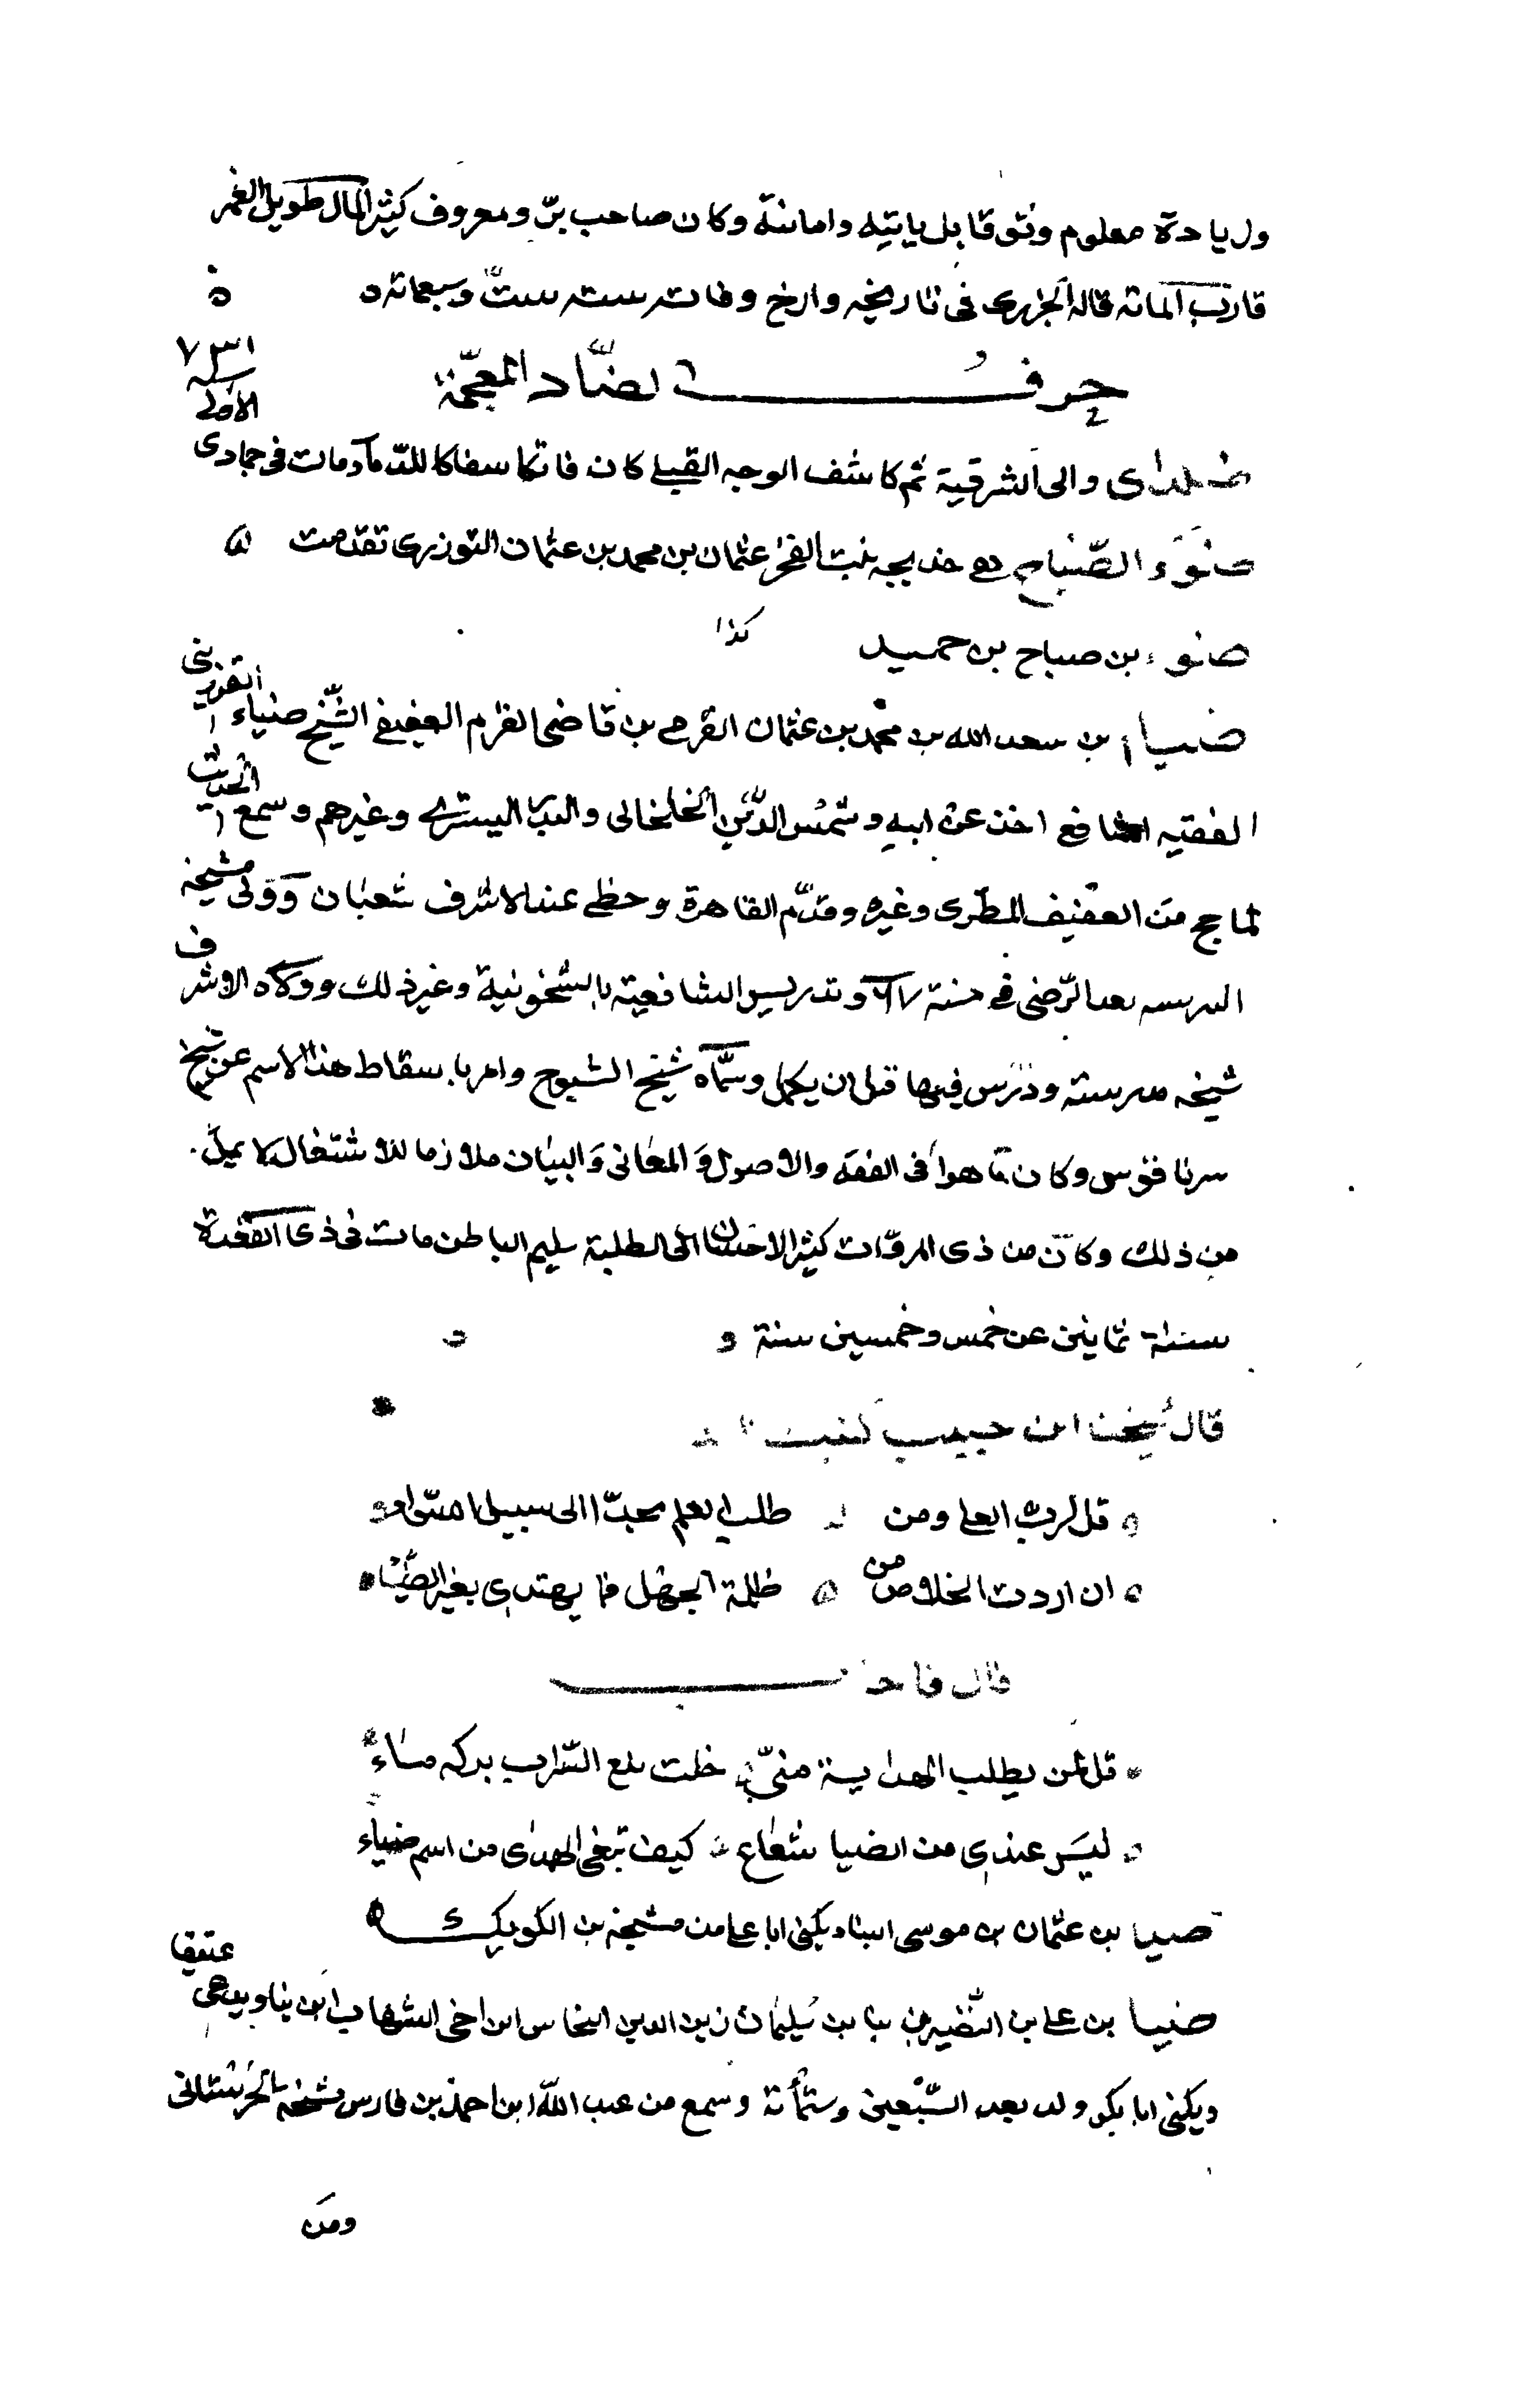 وزيادة معلوم وثق قابل يانته وامانته وكان صاحب بر ومعروف كثير المال طويل العمر
قارب المائة قاله الجزري فى تاريخه وارخ وفاته سنة ست وسبعمائة ه
حرف الضاد المعجمة
والى الشرقية ثم كاشف الوجه القبلي كان فاتكا سفاكا للدماء مات فى جمادى
الاولى سنة ٧٣١
ضوء الصباح هي خديجه بنت الفخر عثمان بن محمد بن عثمان التوزرى تقدمت
ضوء بن صباح بن حميد كذا
ضياء بن سعد الله بن محمد بن عثمان القرمي بن قاضى القرم العفيفي الشيخ ضياء القزوينى
الفقيه الشافع اخذ عن ابيه وشمس الدين الخلخالى والبدر التستري وغيرهم وسمع الحديث
لما حج من العفيف المطرى وغيره وقدم القاهرة وحظي عند الاشرف شعبان وولى مشيخة
البيبرسيه بعد الرضى في سنة ٧٦٧ وتدريس الشافعية بالشيخونية وغير ذلك وولاه الاشرف
شيخه مدرسته ودرس فيها قبل ان يكمل وسماه شيخ الشيوخ وامر باسقاط هذا الاسم عن شيخ
سرياقوس وكان ماهرا فى الفقه والاصول والمعانى والبيان ملازما للاشتغال لا يمل
من ذلك وكان من ذى المروات كثير الاحسان الى الطلبة سليم الباطن مات فى ذى القعدة
سنة ثمانين عن خمس وخمسين سنة
قال شيخنا ابن حبيب كتبت
قل لرب العلى ومن طلب العلم مجدا الى سبيل السواء
ان اردت الخلاص من ظلمة الجهل فما يهتدى بغير الضياء
قال فاجاب
قل لمن يطلب الهداية منى خلت لمع السراب بركة ماء
ليس عندى من الضيا شعاع كيف تبغى الهدى من اسم ضياء
ضيا بن عثمان بن موسى البنا ويكنى ابا على من مشيخة بن الكويك
ضيا بن على بن بنا بن سليمان زين الدين النحاس ابن اخى الشهاب ابن بنا ويدعى عتيقا
ويكنى ابا بكر ولد بعد السبعين وستمائة وسمع من عبد الله ابن احمد بن فارس مشيخة
ومن